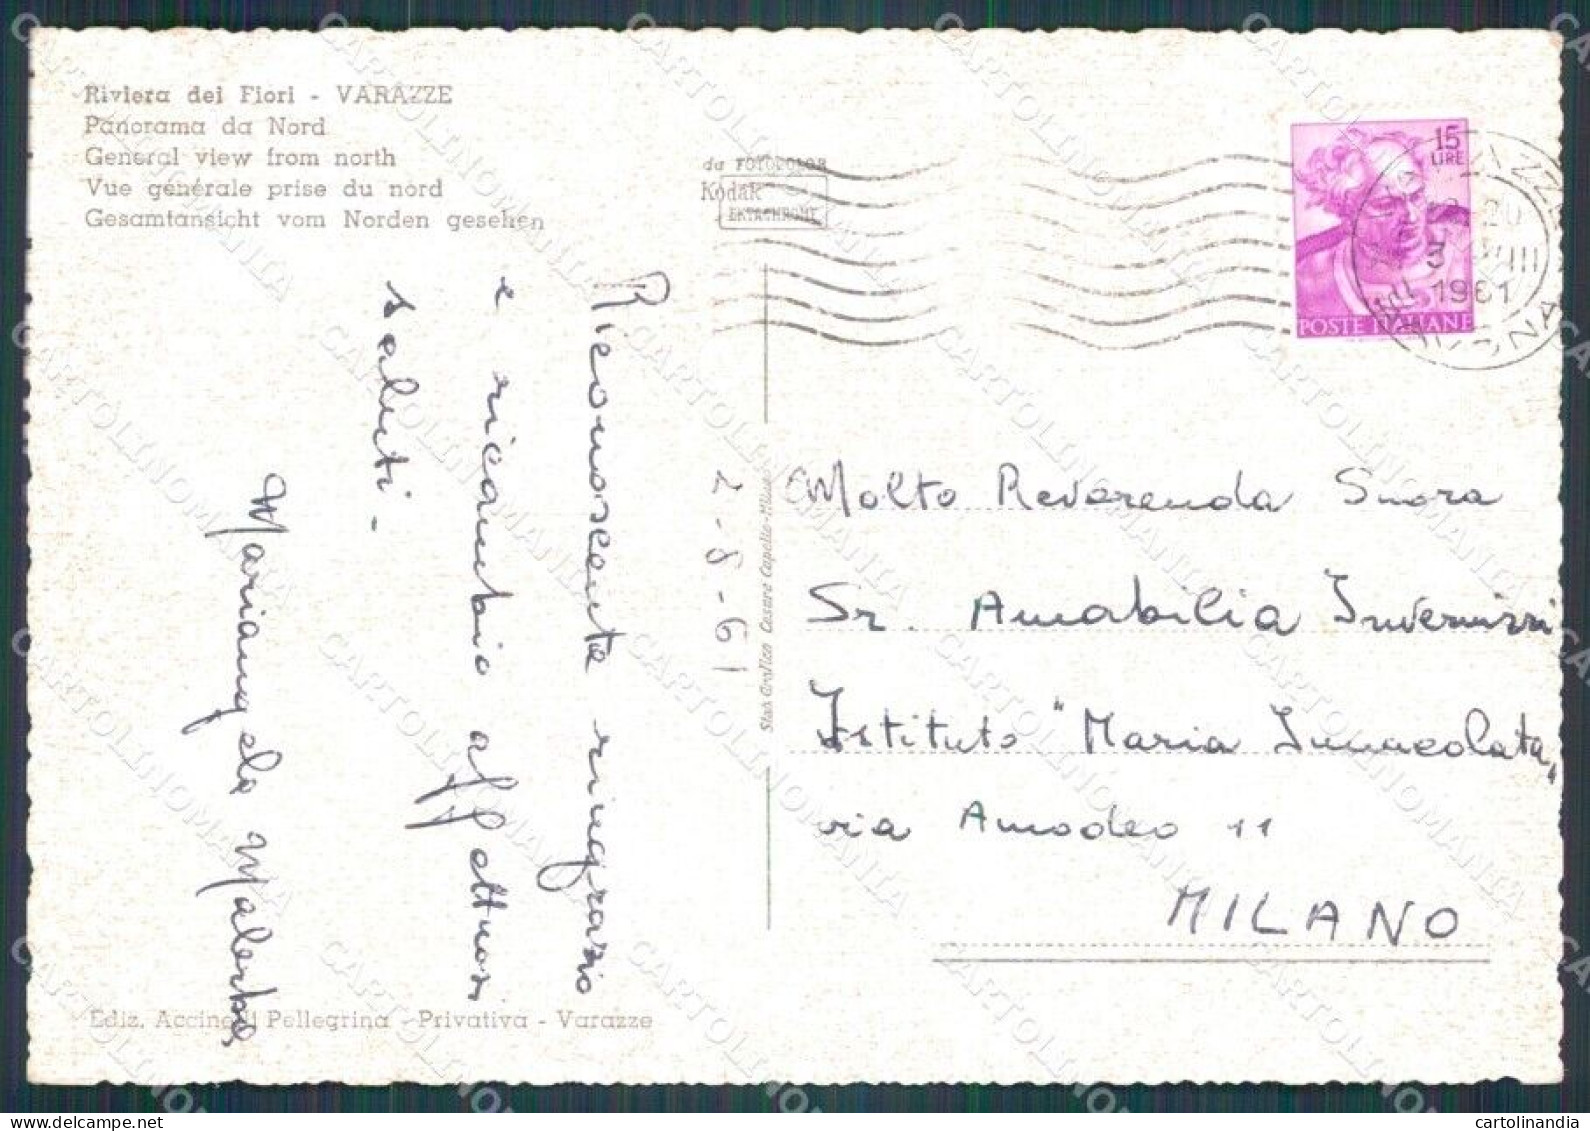 Riviera dei Fiori - VARAZZE
Panorama da Nord
General view from north
Vue générale prise du nord
Gesamtansicht vom Norden gesehen
da FOTOCOLOR
Kodak
EKTACHROME
15
LIRE
POSTE ITALIANE
1961
2-8-61
Riconoscente ringrazio
e ricambio affettuosi
saluti.
Mariangela Malerba
Stab Grafico Cesare Capello-Milano
Molto Reverenda Suora
Sr. Amabilia Invernizzi
Istituto "Maria Immacolata"
via Amodeo 11
MILANO
Ediz. Accinelli Pellegrina - Privativa - Varazze
CARTOLINOMANIA
cartolinandia